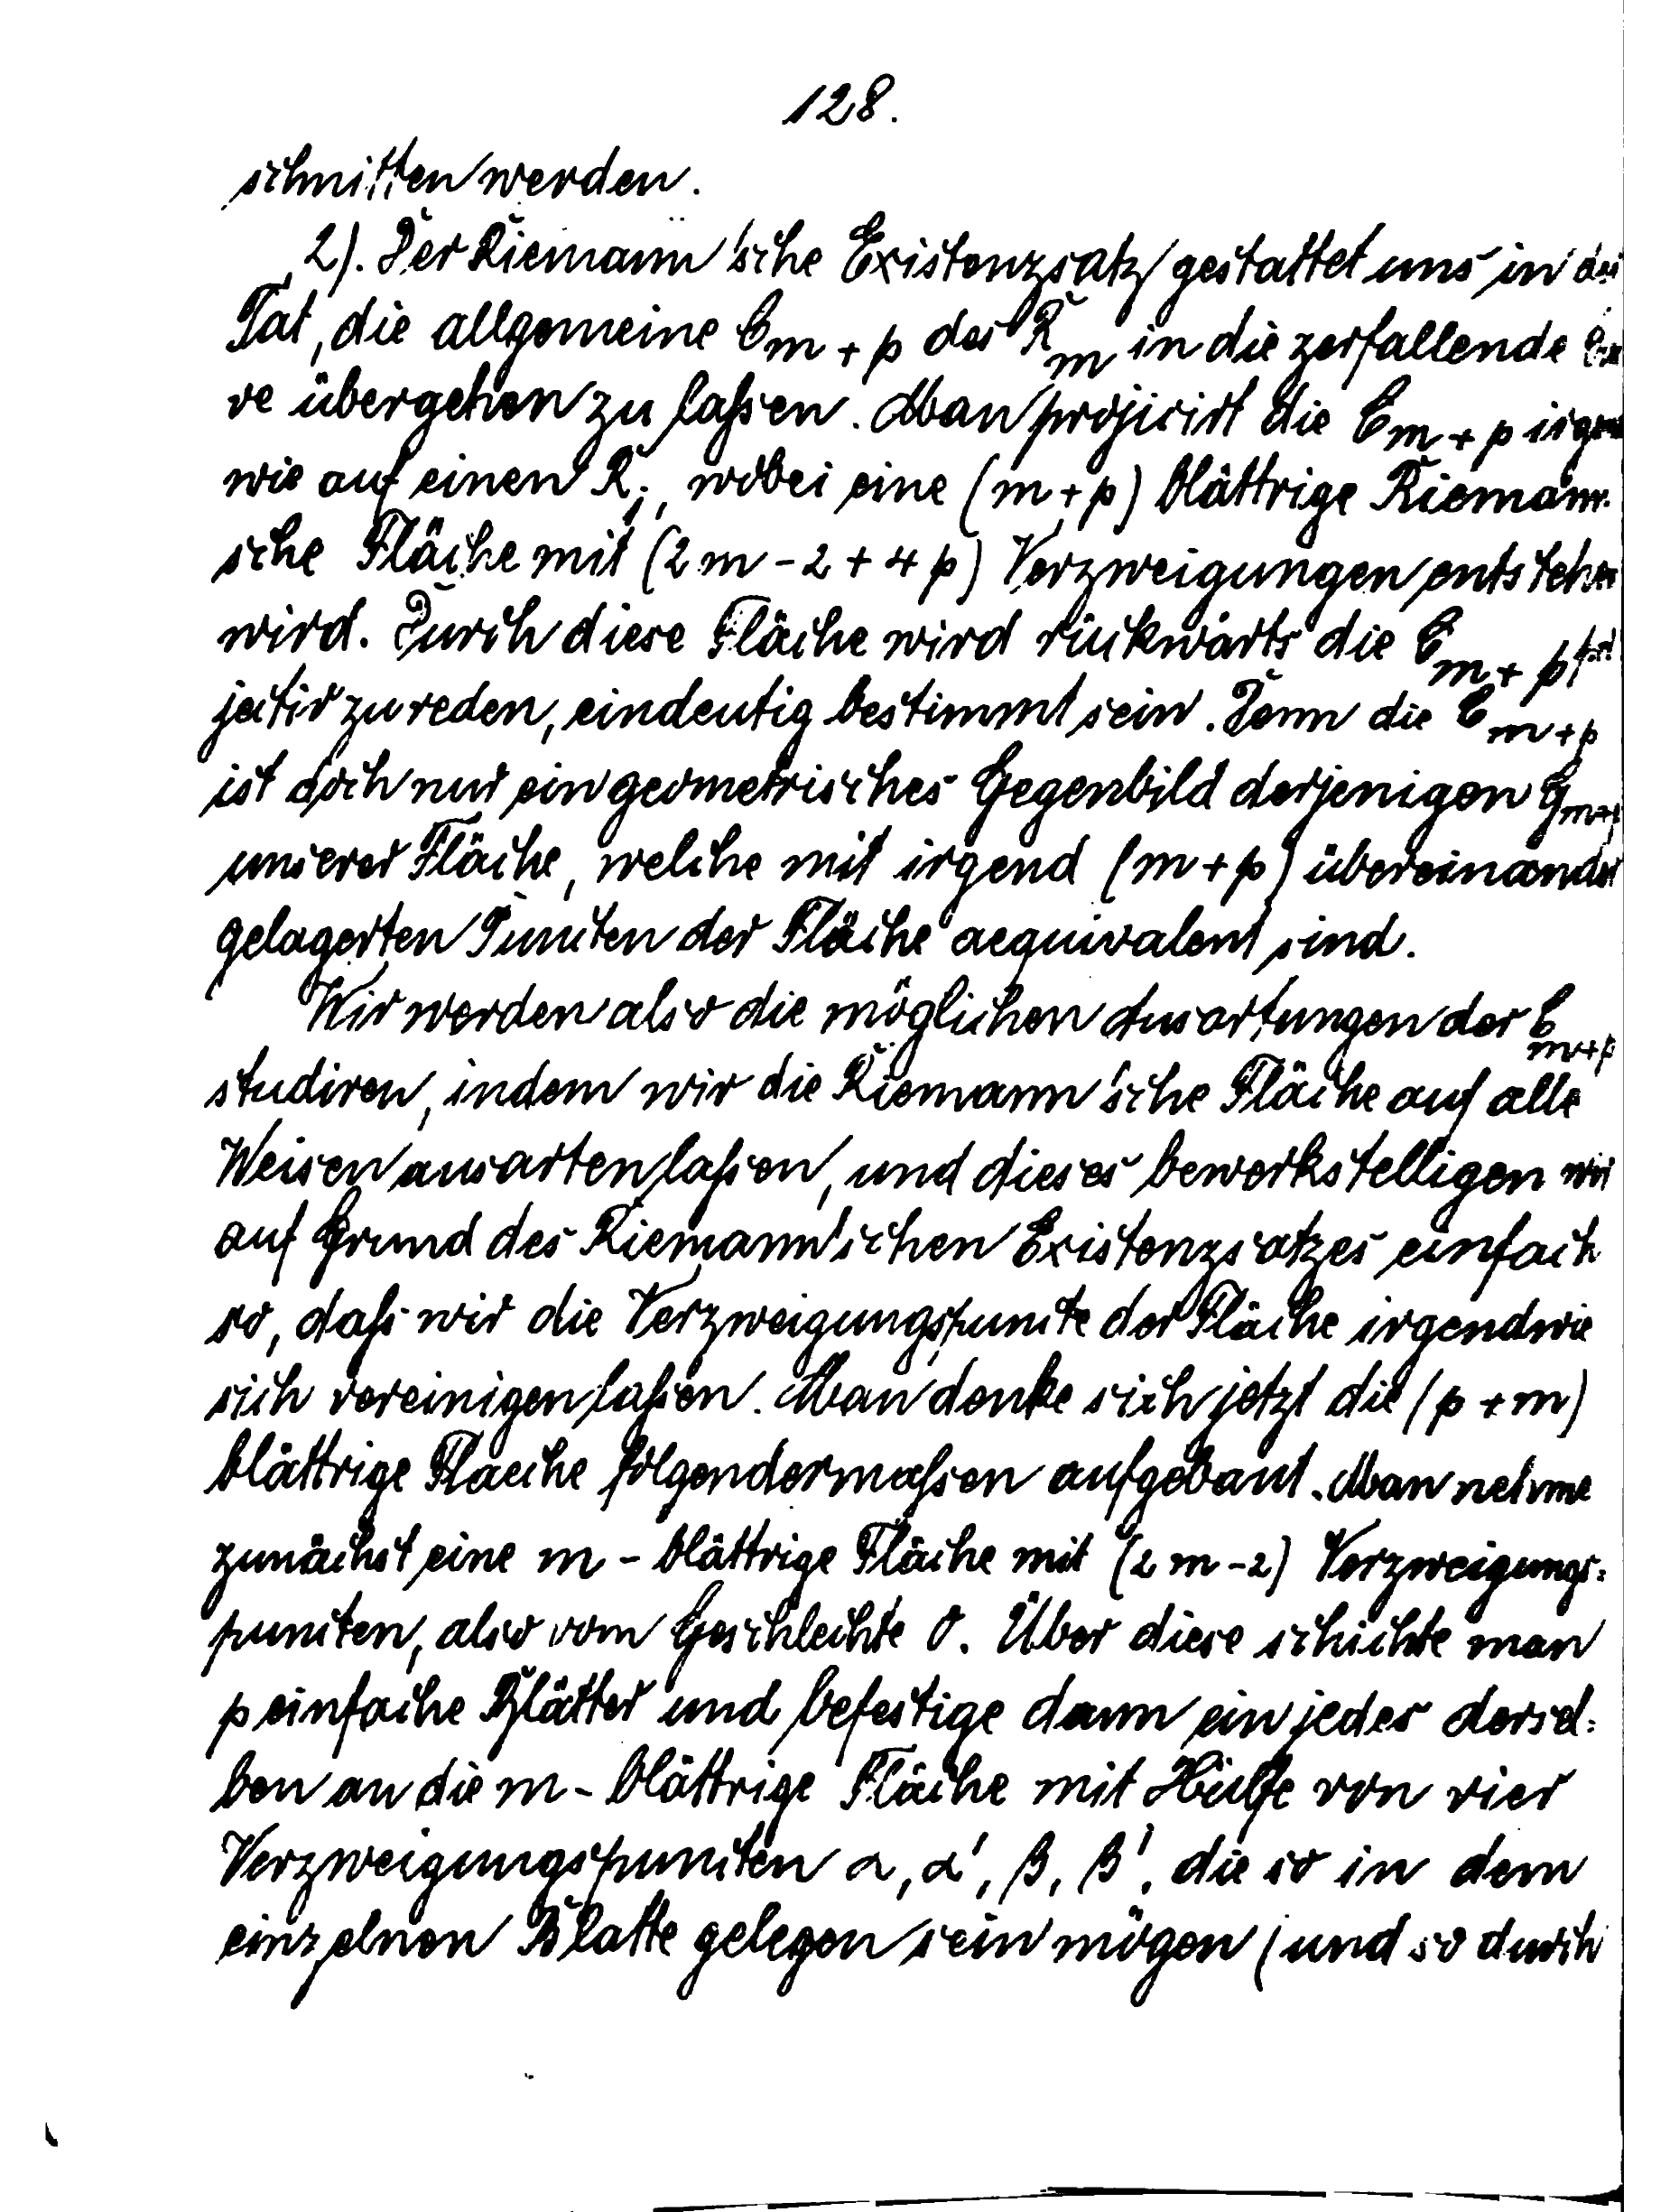 128.
schnitten werden.
2). Der Riemann'sche Existenzsatz gestattet uns in der
Tat, die allgemeine C_{m+p} des R_m in die zerfallende
ve übergehen zu laßen. Man projicirt die C_{m+p} irgend
wie auf einen R_1, wobei eine (m+p) blättrige Riemann.
sche Fläche mit (2m-2+4p) Verzweigungen entstehen
wird. Durch diese Fläche wird rückwärts die C_{m+p},
jectiv zu reden, eindeutig bestimmt sein. Denn die C_{m+p}
ist doch nur ein geometrisches Gegenbild derjenigen G_{m+p}
unserer Fläche, welche mit irgend (m+p) übereinander
gelagerten Puncten der Fläche aequivalent sind.
Wir werden also die möglichen Ausartungen der C_{m+p}
studiren, indem wir die Riemann'sche Fläche auf alle
Weisen ausarten laßen, und dieses bewerkstelligen wir
auf Grund des Riemann'schen Existenzsatzes einfach
so, daß wir die Verzweigungspuncte der Fläche irgendwie
sich vereinigen laßen. Man denke sich jetzt die (p+m)
blättrige Flaeche folgendermaßen aufgebaut. Man nehme
zunächst eine m-blättrige Fläche mit (2m-2) Verzweigungs=
puncten, also vom Geschlechte 0. Über diese schichte man
p einfache Blätter und befestige dann ein jedes dersel=
ben an die m-blättrige Fläche mit Hülfe von vier
Verzweigungspuncten α, α', β, β', die so in dem
einzelnen Blatte gelegen sein mögen (und so durch